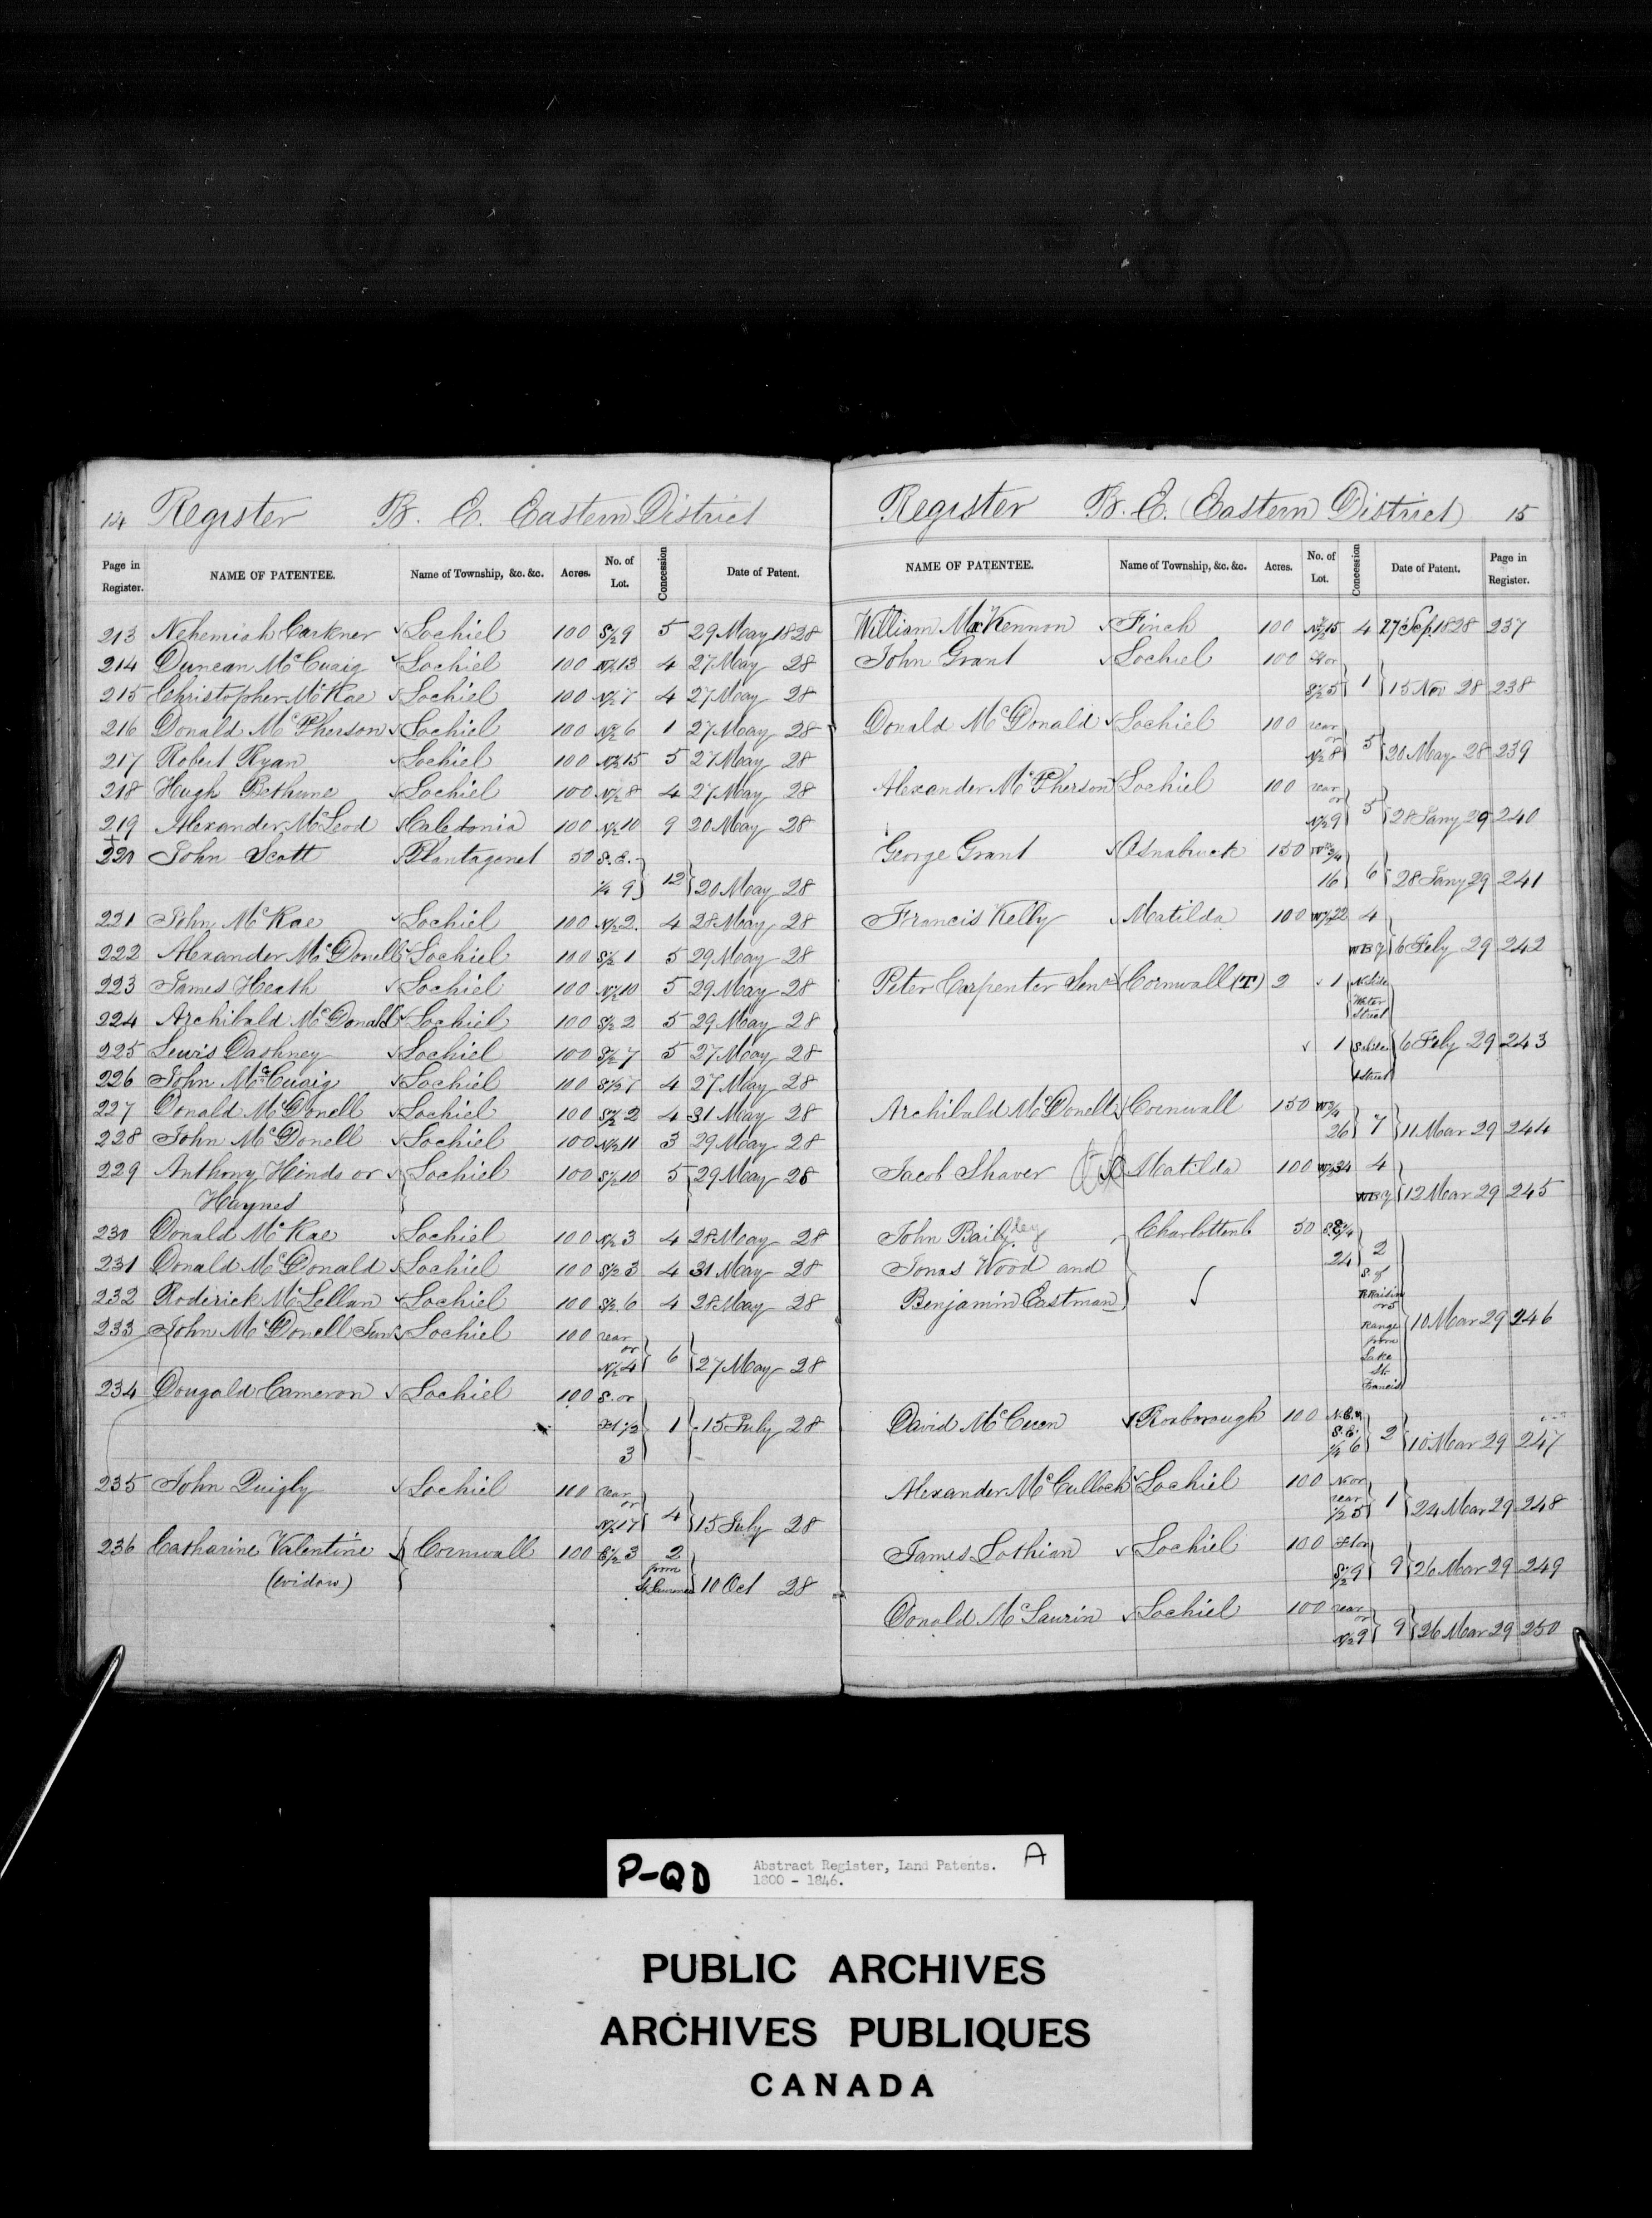 14 Register B. E. Eastern District
Page in Register. NAME OF PATENTEE. Name of Township, &c. &c. Acres. No. of Lot. Concession Date of Patent.
213 Nehemiah Carkner ✓ Lochiel 100 S½ 9 5 29 May 1828
214 Duncan McCuaig ✓ Lochiel 100 N½ 13 4 27 May 28
215 Christopher McRae ✓ Lochiel 100 N½ 7 4 27 May 28
216 Donald McPherson ✓ Lochiel 100 N½ 6 1 27 May 28
217 Robert Ryan ✓ Lochiel 100 N½ 15 5 27 May 28
218 Hugh Bethune ✓ Lochiel 100 N½ 8 4 27 May 28
219 Alexander McLeod ✓ Caledonia 100 N½ 10 9 20 May 28
220 John Scott ✓ Plantagenet 50 S.E.
¼ 9 } 12 } 20 May 28
221 John McRae ✓ Lochiel 100 N½ 2 4 28 May 28
222 Alexander McDonell ✓ Lochiel 100 S½ 1 5 29 May 28
223 James Heath ✓ Lochiel 100 N½ 10 5 29 May 28
224 Archibald McDonald ✓ Lochiel 100 S½ 2 5 29 May 28
225 Lewis Dashney ✓ Lochiel 100 S½ 7 5 27 May 28
226 John McCuaig ✓ Lochiel 100 S½ 7 4 27 May 28
227 Donald McDonell ✓ Lochiel 100 S½ 2 4 31 May 28
228 John McDonell ✓ Lochiel 100 N½ 11 3 29 May 28
229 Anthony Hinds or ✓ Lochiel 100 S½ 10 5 29 May 28
Haynes
230 Donald McRae ✓ Lochiel 100 N½ 3 4 28 May 28
231 Donald McDonald ✓ Lochiel 100 S½ 3 4 31 May 28
232 Roderick McLellan ✓ Lochiel 100 S½ 6 4 28 May 28
233 John McDonell Junr ✓ Lochiel 100 rear
or
N½ 4 } 6 } 27 May 28
234 Dougald Cameron ✓ Lochiel 100 S. or
½ } 1 15 July 28
3
235 John Quigly ✓ Lochiel 100 rear
or
N½ 17 } 4 } 15 July 28
236 Catharine Valentine ✓ Cornwall 100 E½ 3 2
(widow) from
10 Oct 28
Register B. E. Eastern District 15
NAME OF PATENTEE. Name of Township, &c. &c. Acres. No. of Lot. Concession Date of Patent. Page in Register.
William McKennon ✓ Finch 100 N½ 15 4 27 Sep 1828 237
John Grant ✓ Lochiel 100 or
S½ 5 } 1 } 15 Nov 28 238
Donald McDonald ✓ Lochiel 100 rear
or
N½ 8 } 5 } 20 May 28 239
Alexander McPherson ✓ Lochiel 100 rear
or
N½ 9 } 5 } 28 Jany 29 240
George Grant ✓ Osnabruck 150 W ¾
16 } 6 } 28 Jany 29 241
Francis Kelly ✓ Matilda 100 W½ 22 4
} 6 Feby 29 242
Peter Carpenter Senr ✓ Cornwall (T) 2 ✓ 1 N. side
Water
Street
✓ 1 S. side } 6 Feby 29 243
1 Street
Archibald McDonell ✓ Cornwall 150 W¾
26 } 7 } 11 Mar 29 244
Jacob Shaver ✓ Matilda 100 W½ 34 4
} 12 Mar 29 245
John Bailey Charlottenb 50 S.E.¼
Jonas Wood and 24 } 2
Benjamin Eastman } ✓ S. of
R Raisin
or 5
Range } 10 Mar 29 246
from
Lake
St.
Francis
David McCuen ✓ Roxborough 100 N.E.¼
S.E.
¼ 6 } 2 } 10 Mar 29 247
Alexander McCulloch ✓ Lochiel 100 N or
rear
½ 5 } 1 } 24 Mar 29 248
James Lothian ✓ Lochiel 100 or
S½ 9 } 9 } 26 Mar 29 249
Donald McLaurin ✓ Lochiel 100 rear
or
N½ 9 } 9 } 26 Mar 29 250
P-QD Abstract Register, Land Patents. A
1800 - 1846.
PUBLIC ARCHIVES
ARCHIVES PUBLIQUES
CANADA